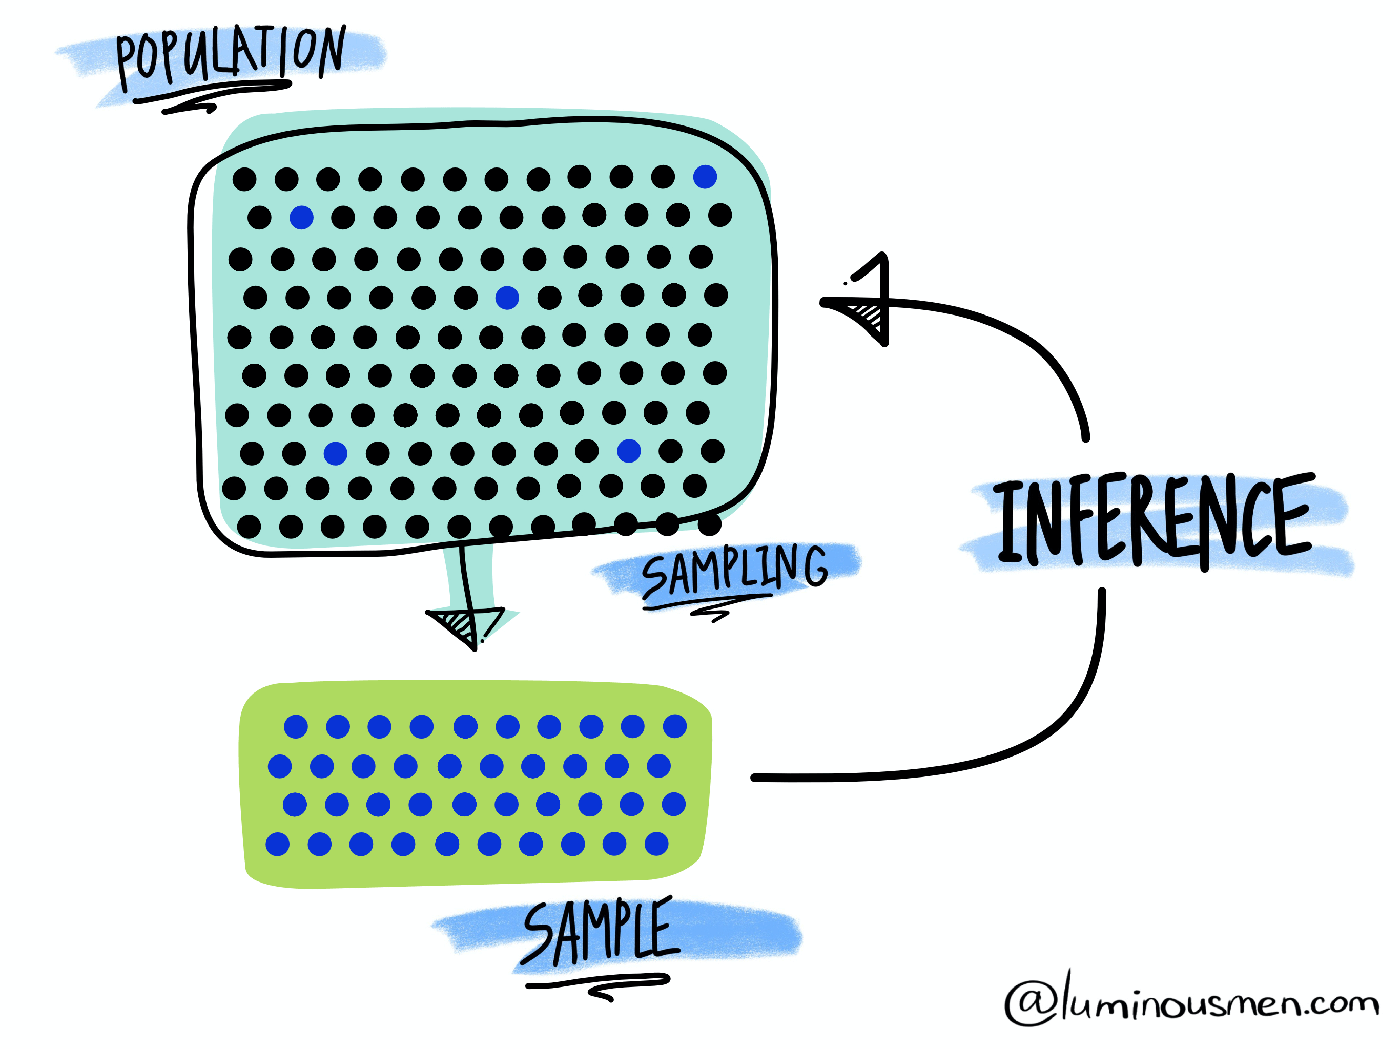 POPULATION
SAMPLING
INFERENCE
SAMPLE
@luminousmen.com